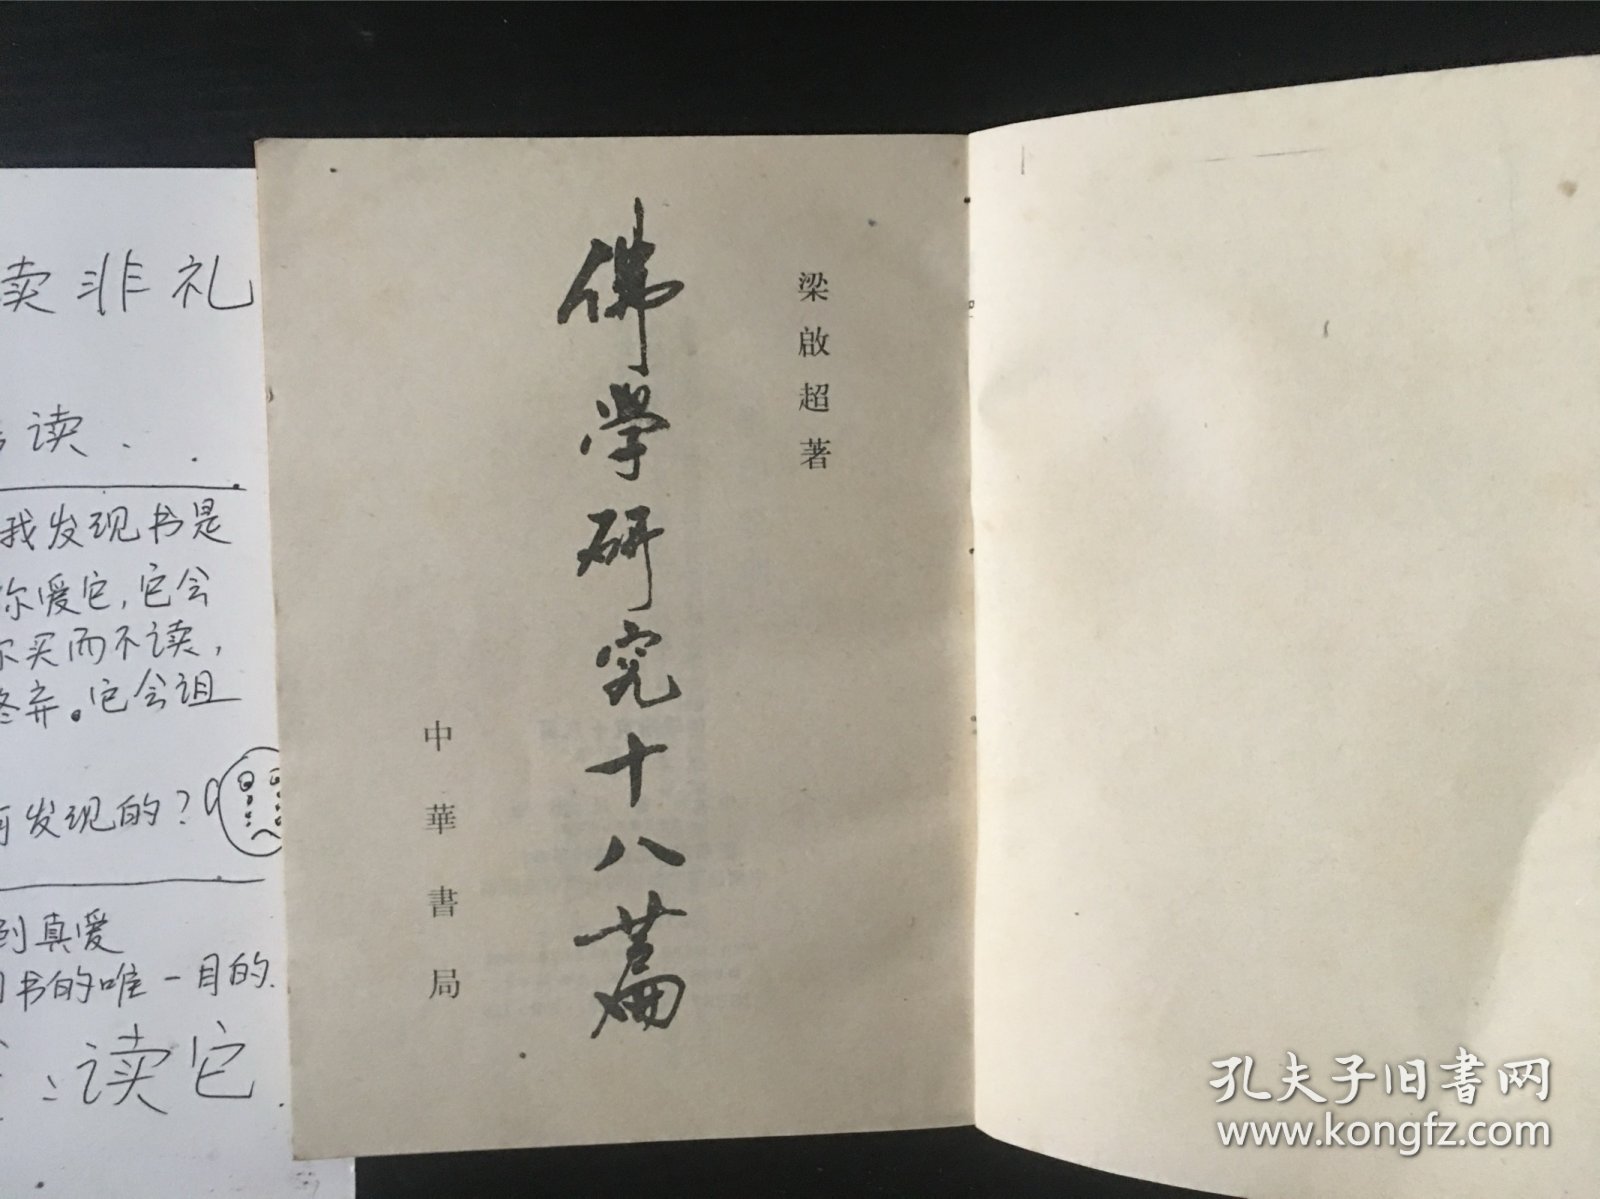 梁啟超著
佛學研究十八篇
中華書局
读非礼
读.
我发现书是
你爱它,它会
尔买而不读,
弃。它会诅
发现的?
到真爱
书的唯一目的.
:读它
孔夫子旧書网
www.kongfz.com